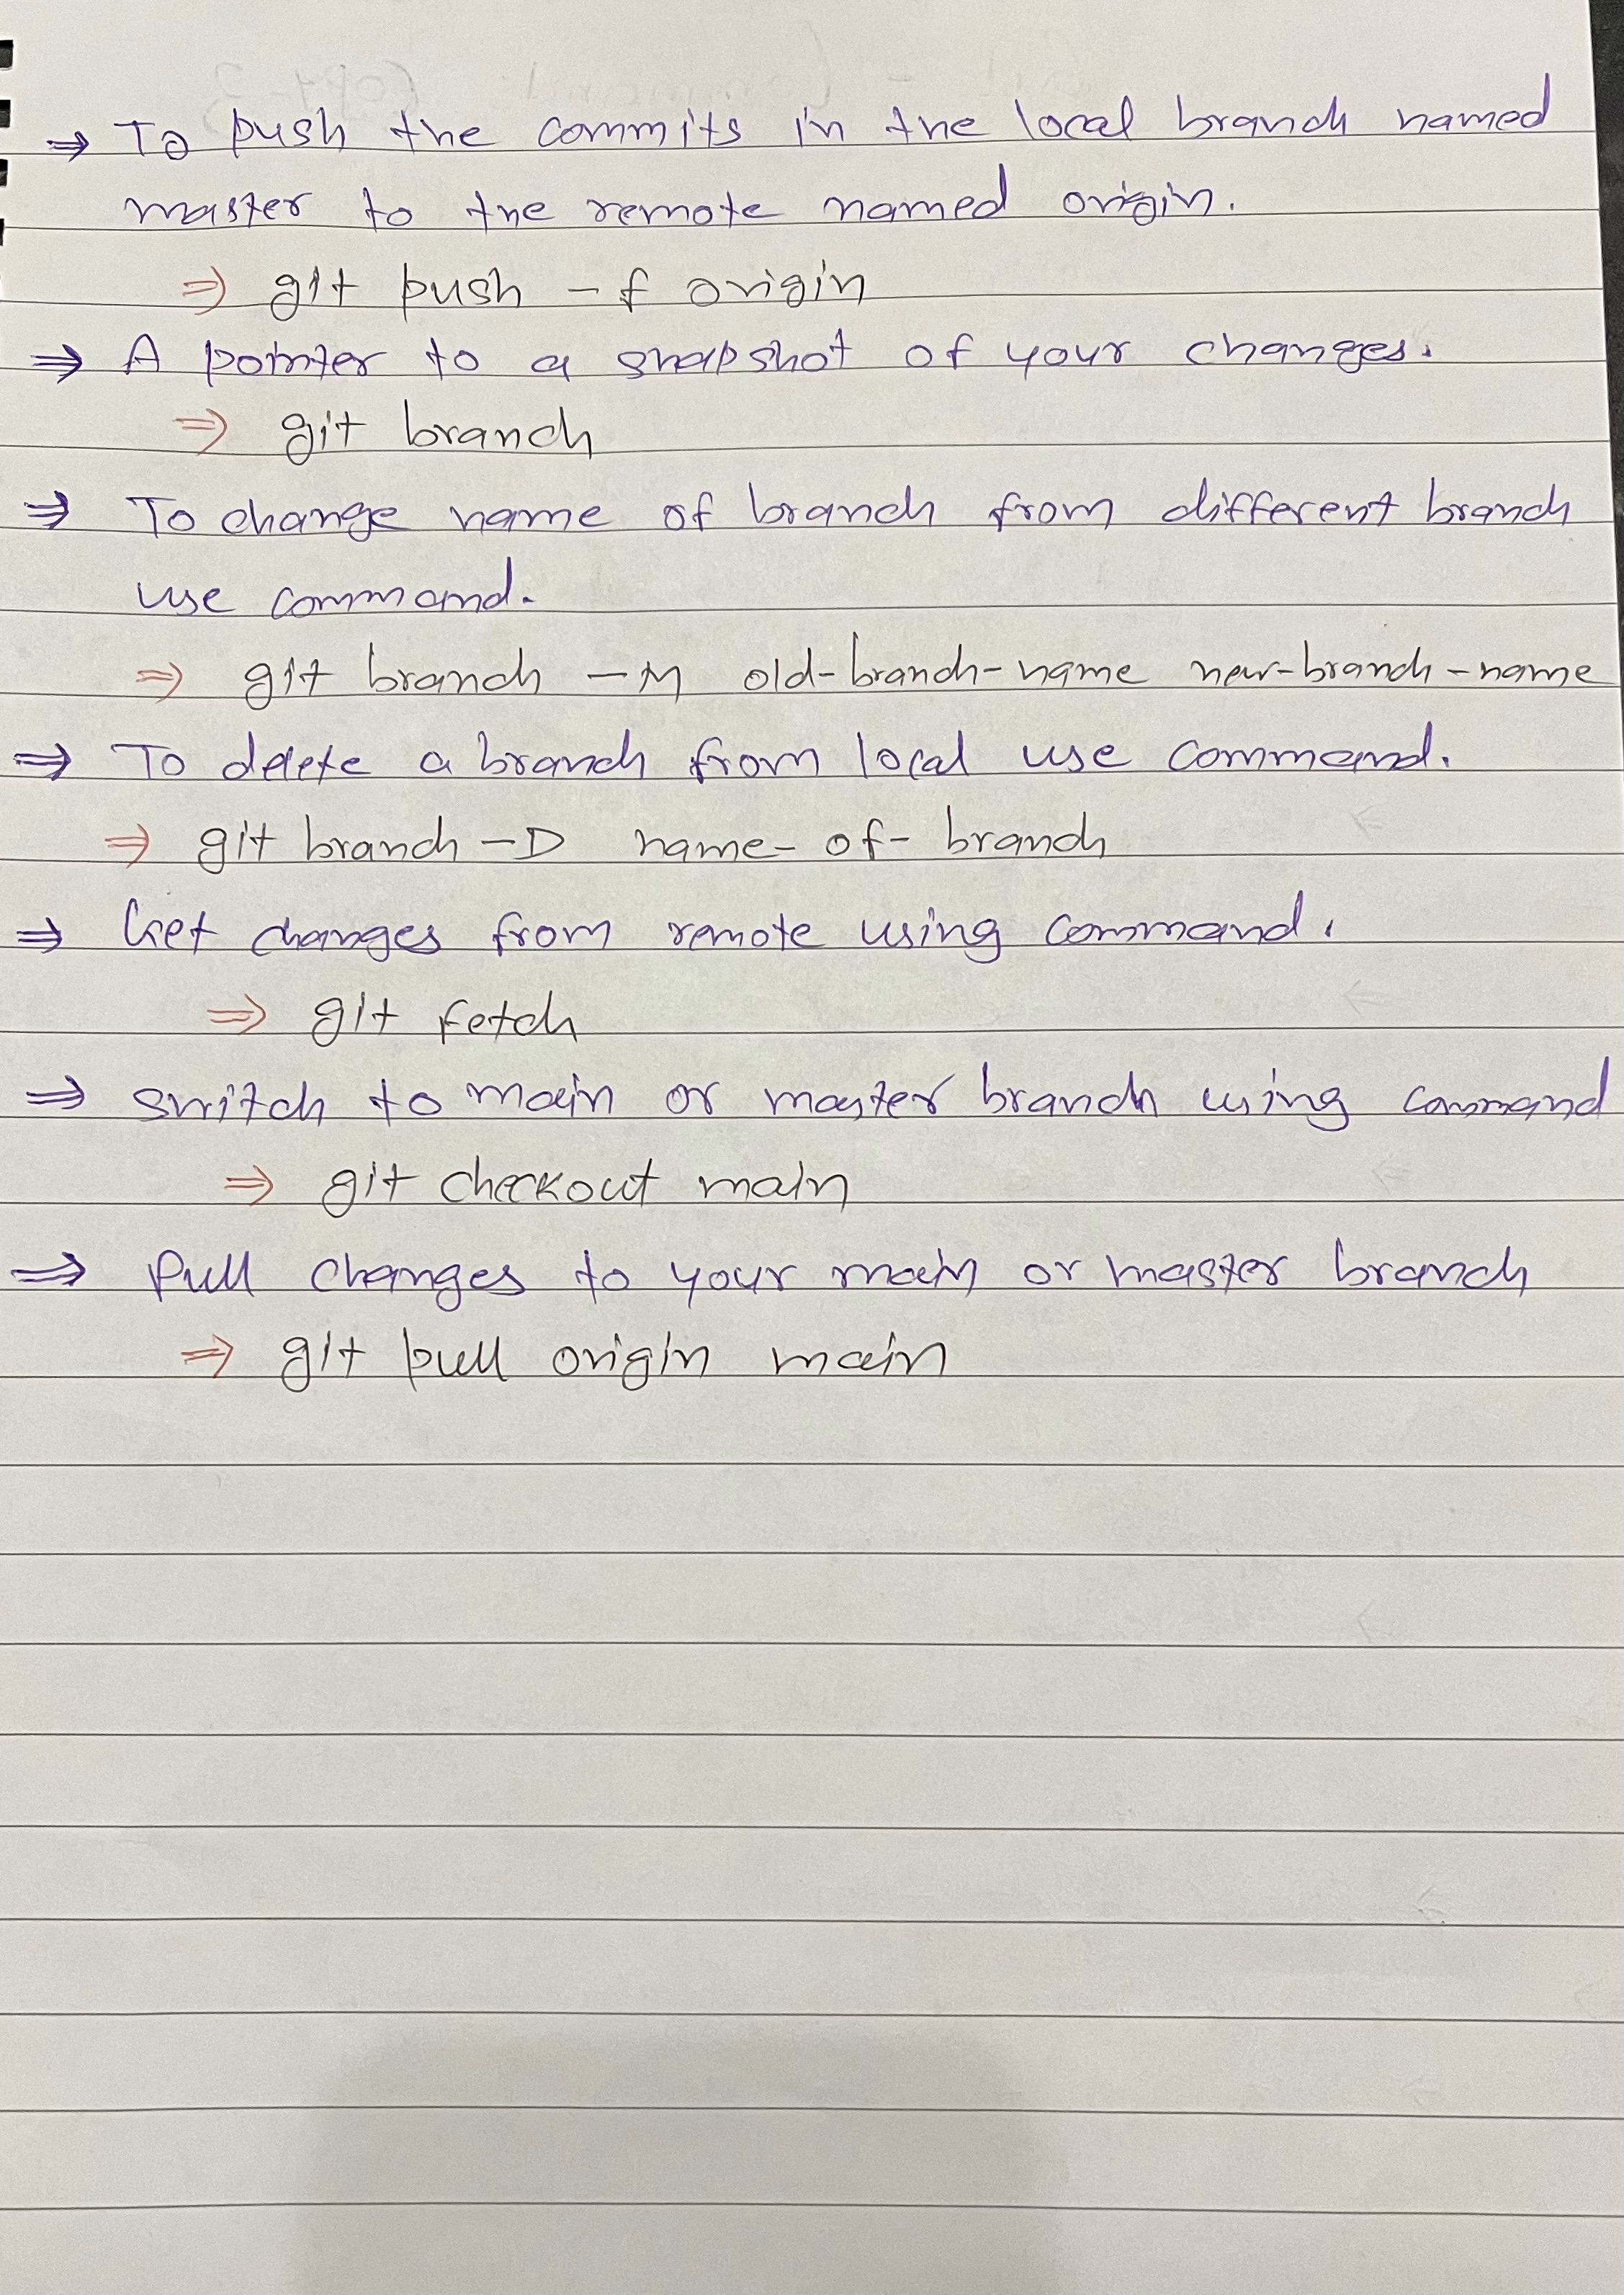 ⇒ To push the commits in the local branch named
master to the remote named origin.
⇒ git push -f origin
⇒ A pointer to a snapshot of your changes.
⇒ git branch
⇒ To change name of branch from different branch
use command.
⇒ git branch -M old-branch-name new-branch-name
⇒ To delete a branch from local use command.
⇒ git branch -D name-of-branch
⇒ Get changes from remote using command.
⇒ git fetch
⇒ switch to main or master branch using command
⇒ git checkout main
⇒ Pull changes to your main or master branch
⇒ git pull origin main